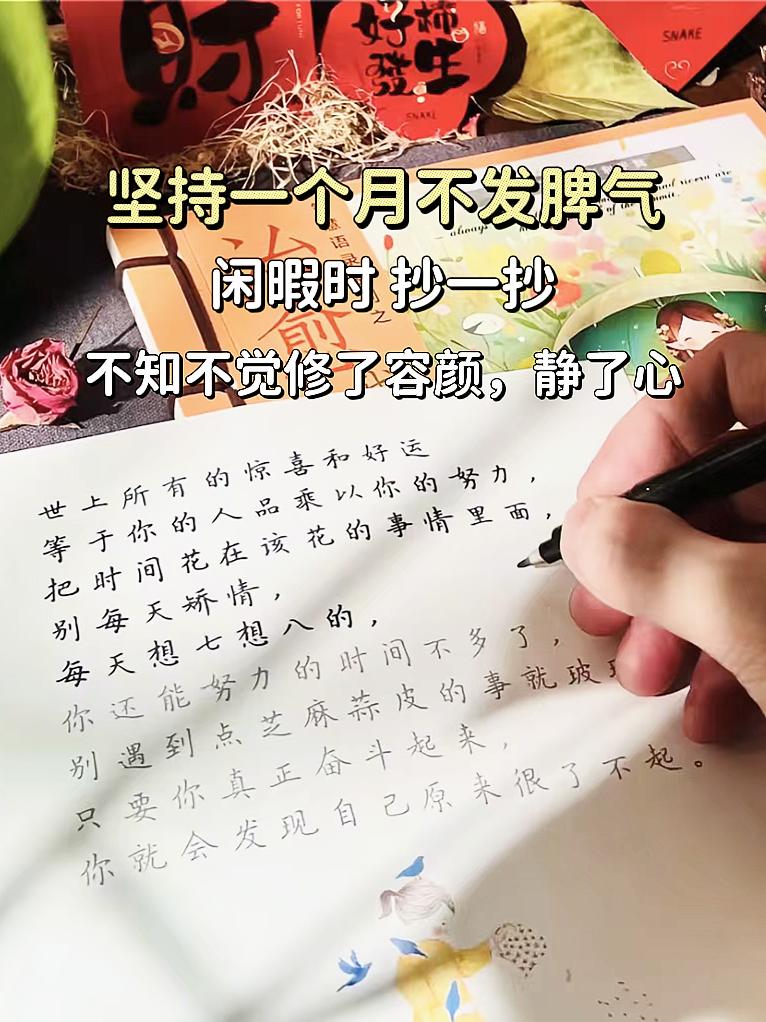 財
好柿
發生
SNAKE
SNAKE
坚持一个月不发脾气
治愈
语录
之
always
闲暇时 抄一抄
不知不觉修了容颜，静了心
世上所有的惊喜和好运
等于你的人品乘以你的努力，
把时间花在该花的事情里面，
别每天矫情，
每天想七想八的，
你还能努力的时间不多了，
别遇到点芝麻蒜皮的事就玻
只要你真正奋斗起来，
你就会发现自己原来很了不起。